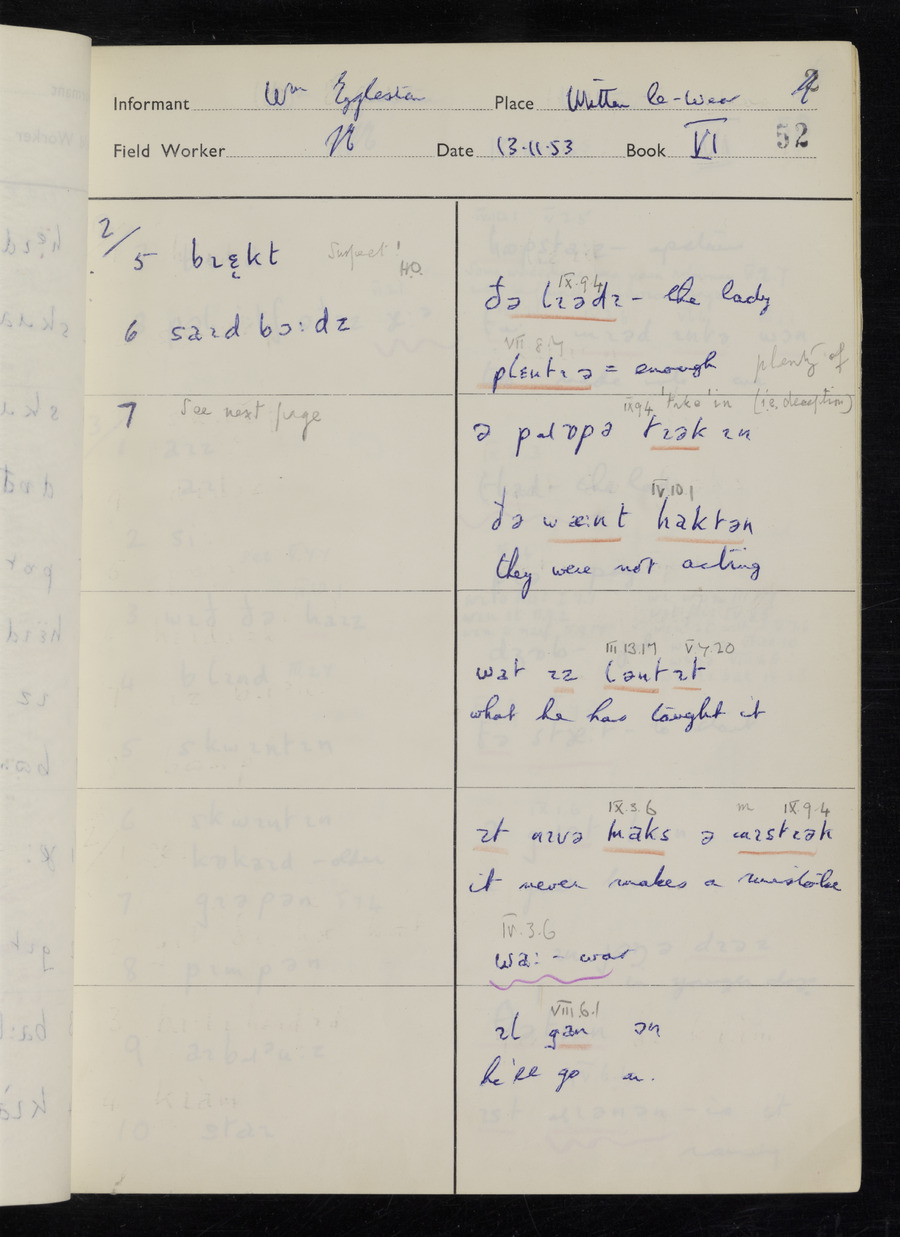 Informant Wm Eggleston Place Witton le-Wear 2
Field Worker N Date 13.11.53 Book VI 52
2/5 brɛ̨kt Suspect! H.O.
6 saɪd bɔ:dz
7 See next page
IX.9.4
ðə lɪədɪ - the lady
VII 8.7
plɛntɪ ə = enough plenty of
IX 9 4 'take' in (i.e. deception)
tɪək ɪn
IV.10.1
ðə wæ:nt haktən
they were not acting
III 13.17 V 7.20
wat ɪz ləut ɪt
what he has taught it
IX.3.6 m IX.9.4
ɪt nɪvə maks ə mɪstɪək
it never makes a mistake
IV.3.6
wa: - war
VIII.6.1
ɪl gan ən
he'll go on.